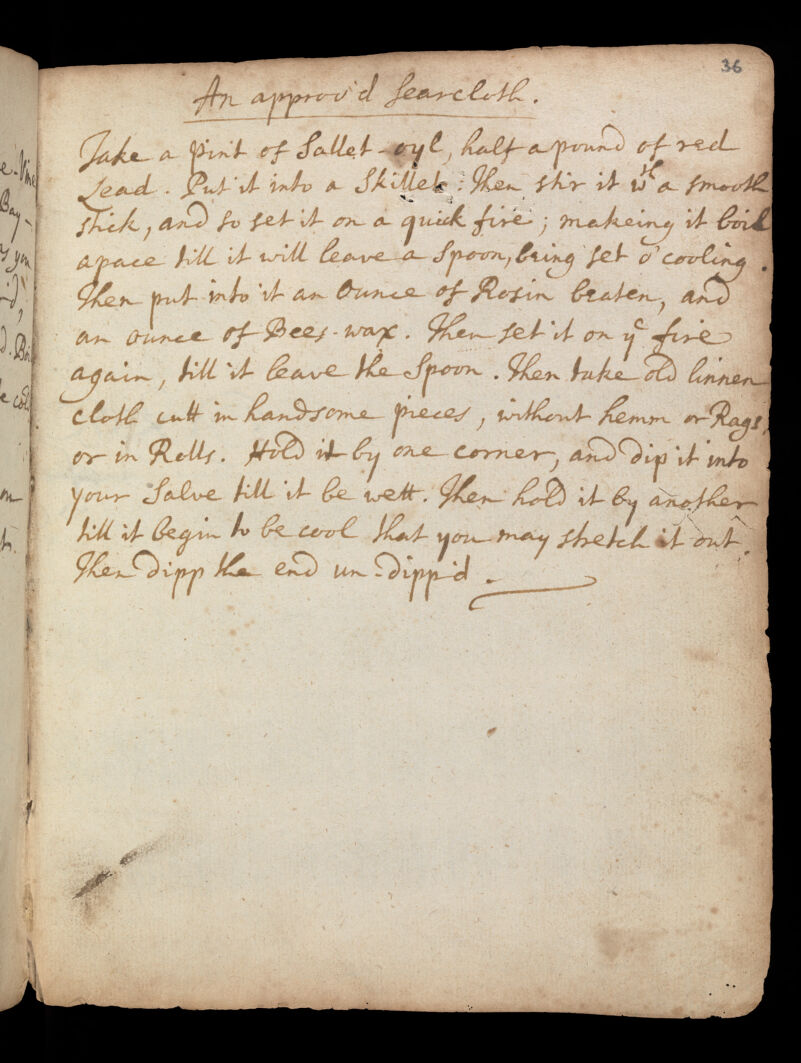 36
An approv'd Searcloth.
Take a pint of Sallet-oyl, half a pound of red
Lead. Put it into a Skillet: Then stir it wth a smooth
stick, and so set it on a quick fire; makeing it boil
apace till it will leave a Spoon, being set o' cooling.
Then put into it an Ounce of Rosin beaten, and
an ounce of Bees-wax. Then set it on ye fire
again, till it leave the Spoon. Then take old linnen
cloth cutt in handsome pieces, without hemm or Rags,
or in Rolls. Hold it by one corner, and dip it into
your Salve till it be wett. Then hold it by another
till it begin to be cool that you may stretch it out.
Then dipp the end un-dipp'd.